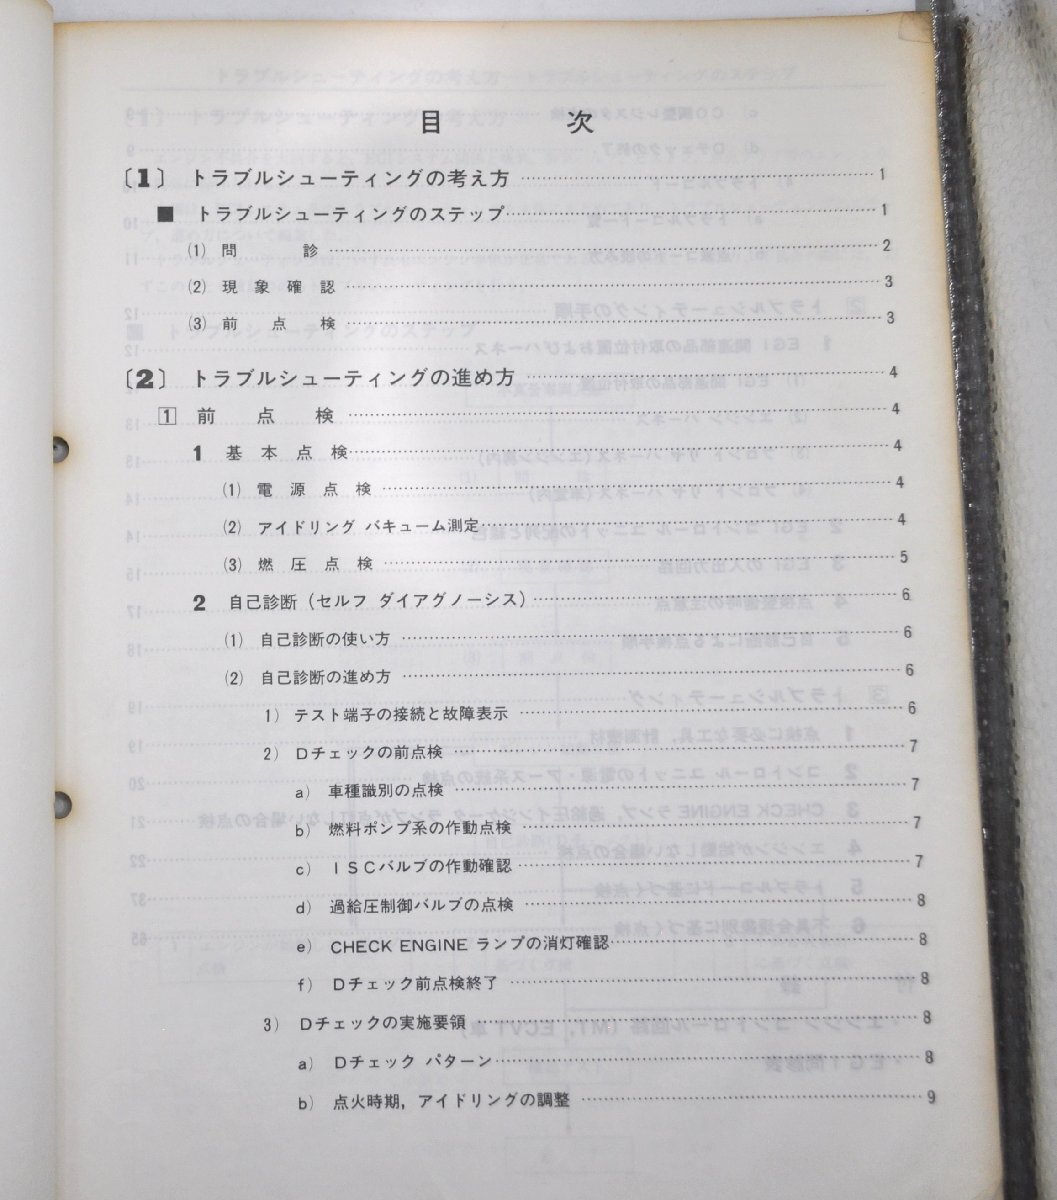 目 次
〔1〕 トラブルシューティングの考え方 …… 1
■ トラブルシューティングのステップ …… 1
(1) 問 診 …… 2
(2) 現 象 確 認 …… 3
(3) 前 点 検 …… 3
〔2〕 トラブルシューティングの進め方 …… 4
1 前 点 検 …… 4
1 基 本 点 検 …… 4
(1) 電 源 点 検 …… 4
(2) アイドリング バキューム測定 …… 4
(3) 燃 圧 点 検 …… 5
2 自己診断 (セルフ ダイアグノーシス) …… 6
(1) 自己診断の使い方 …… 6
(2) 自己診断の進め方 …… 6
1) テスト端子の接続と故障表示 …… 6
2) Dチェックの前点検 …… 7
a) 車種識別の点検 …… 7
b) 燃料ポンプ系の作動点検 …… 7
c) ISCバルブの作動確認 …… 7
d) 過給圧制御バルブの点検 …… 8
e) CHECK ENGINE ランプの消灯確認 …… 8
f) Dチェック前点検終了 …… 8
3) Dチェックの実施要領 …… 8
a) Dチェック パターン …… 8
b) 点火時期, アイドリングの調整 …… 9